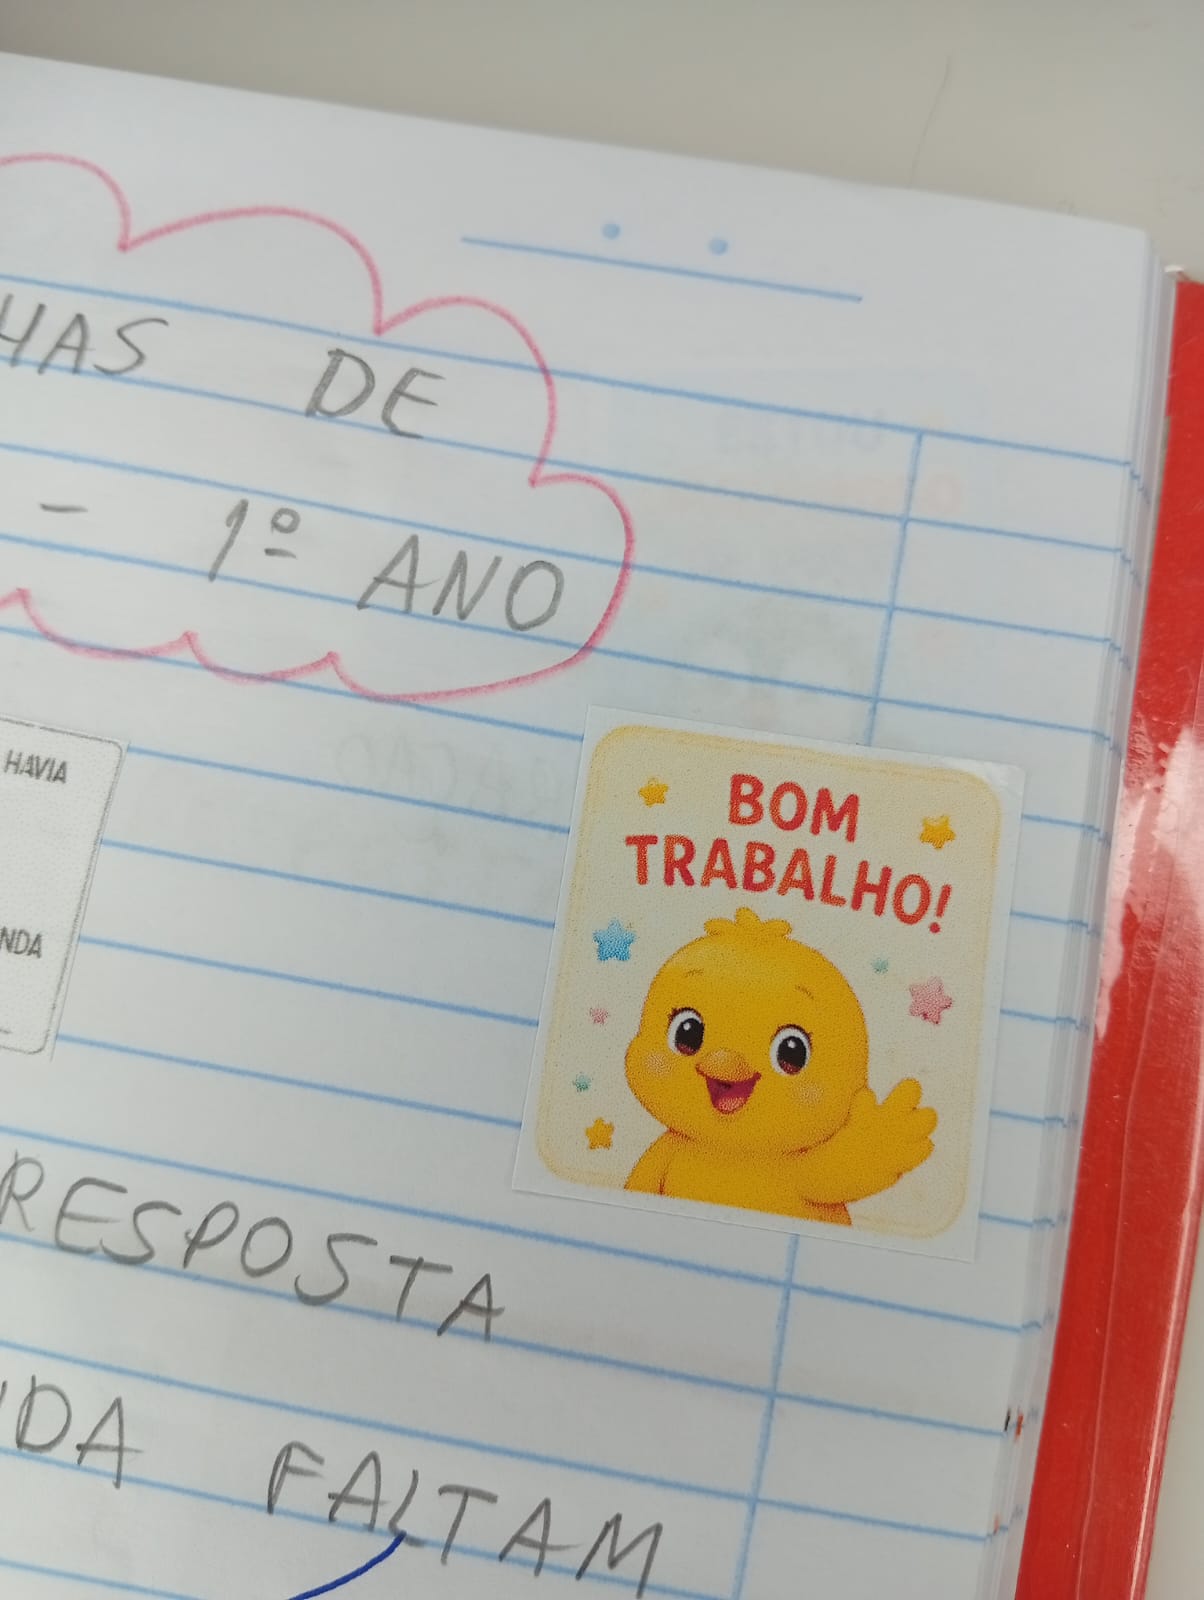 HAS DE
- 1º ANO
HAVIA
NDA
BOM
TRABALHO!
RESPOSTA
DA FALTAM